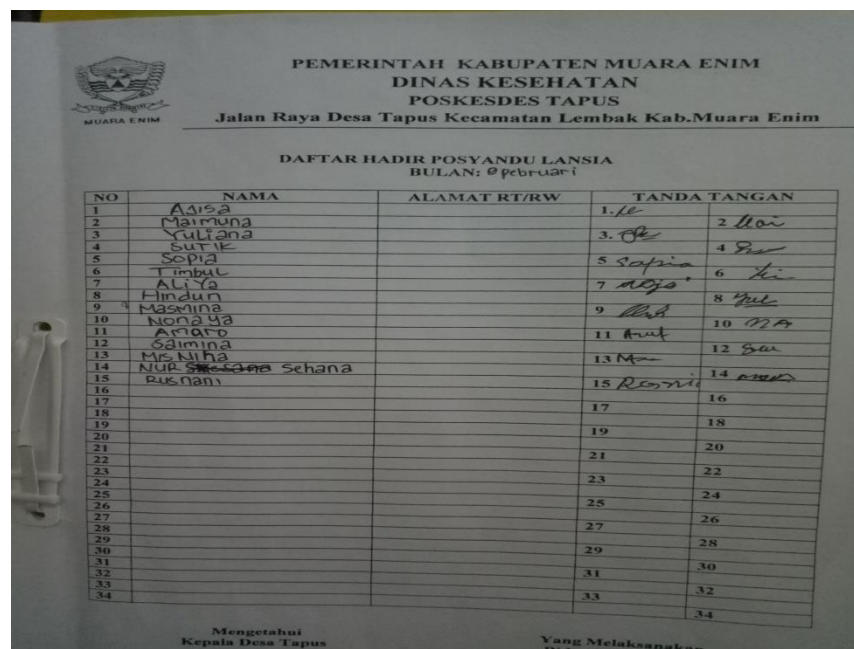 PEMERINTAH KABUPATEN MUARA ENIM
DINAS KESEHATAN
POSKESDES TAPUS
Jalan Raya Desa Tapus Kecamatan Lembak Kab.Muara Enim
MUARA ENIM
DAFTAR HADIR POSYANDU LANSIA
BULAN: Pebruari
NO NAMA ALAMAT RT/RW TANDA TANGAN
1 Ajisa 1.
2 Maimuna 2 Mai
3 Yuliana 3.
4 SUTIK 4
5 Sopia 5 Sopia
6 Timbul 6
7 ALiYa 7
8 Hindun 8
9 Masmina 9
10 Nonaya 10 NA
11 Amaro 11
12 Saimina 12
13 Mis Niha 13
14 NUR Sehana 14
15 Rusnani 15
16 16
17 17
18 18
19 19
20 20
21 21
22 22
23 23
24 24
25 25
26 26
27 27
28 28
29 29
30 30
31 31
32 32
33 33
34 34
Mengetahui Yang Melaksanakan
Kepala Desa Tapus